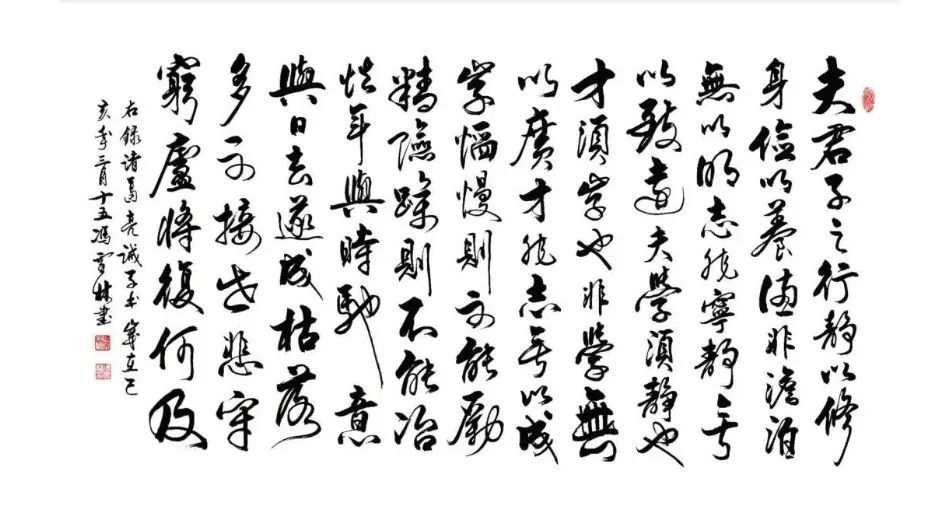 夫君子之行靜以修
身儉以養德非澹泊
無以明志非寧靜无
以致遠夫學須靜也
才須學也非學無
以廣才非志无以成
學慆慢則不能勵
精險躁則不能冶
性年與時馳意
與日去遂成枯落
多不接世悲守
窮廬將復何及
右錄諸葛亮誡子書歲在己
亥年三月十五馮林書